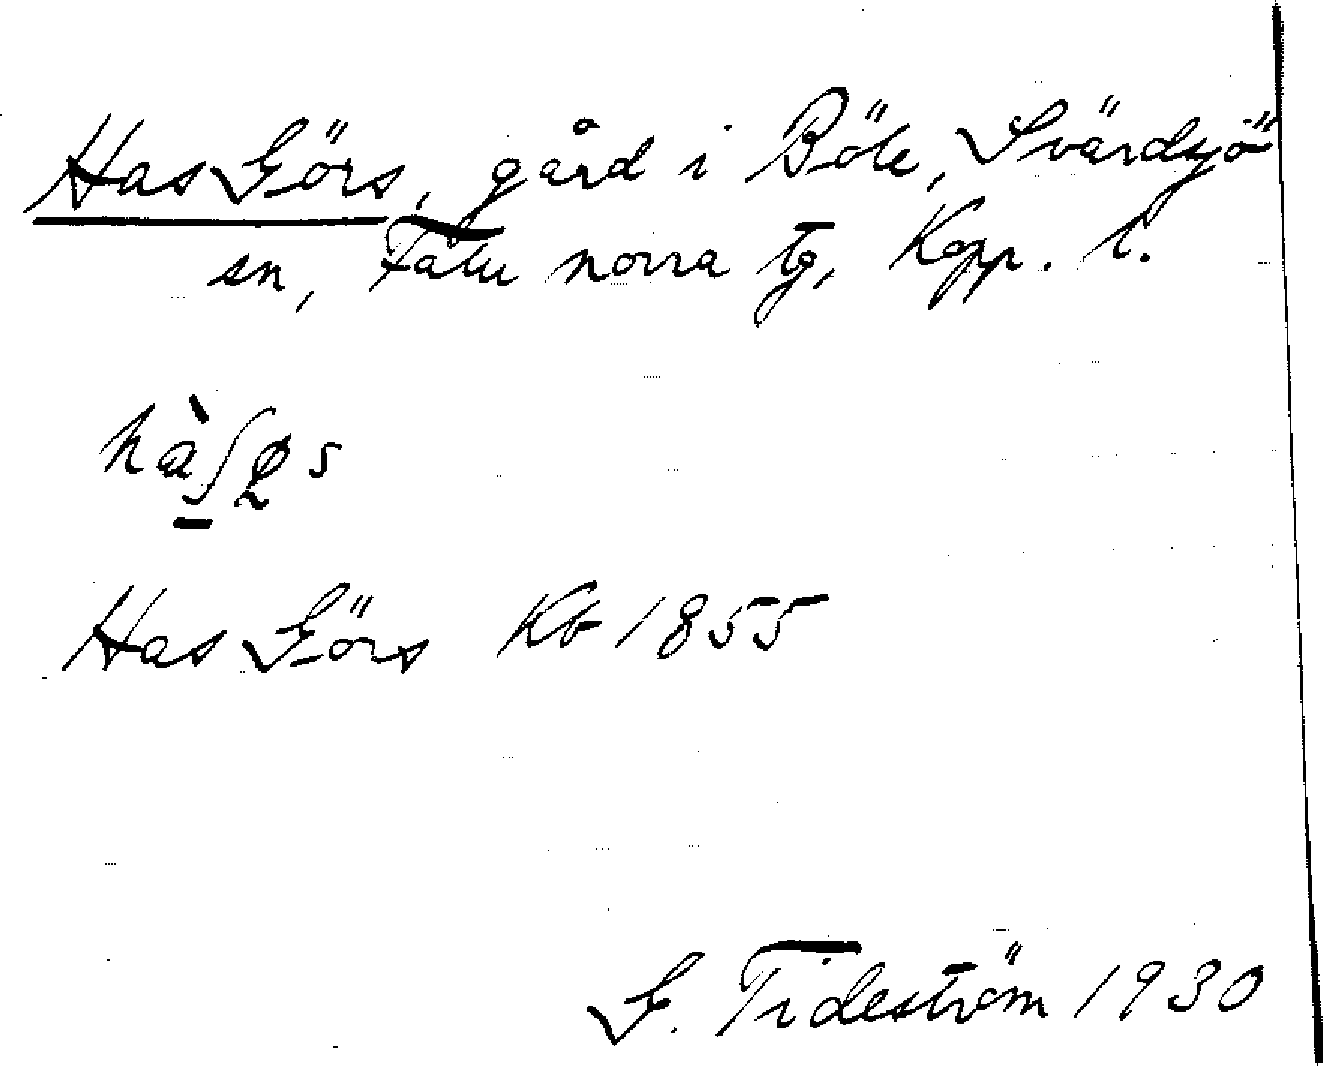 Has Görs, gård i Böle, Svärdsjö
sn, Falu norra tg, Kopp. l.
Has Görs Kb 1855
G. Tideström 1930